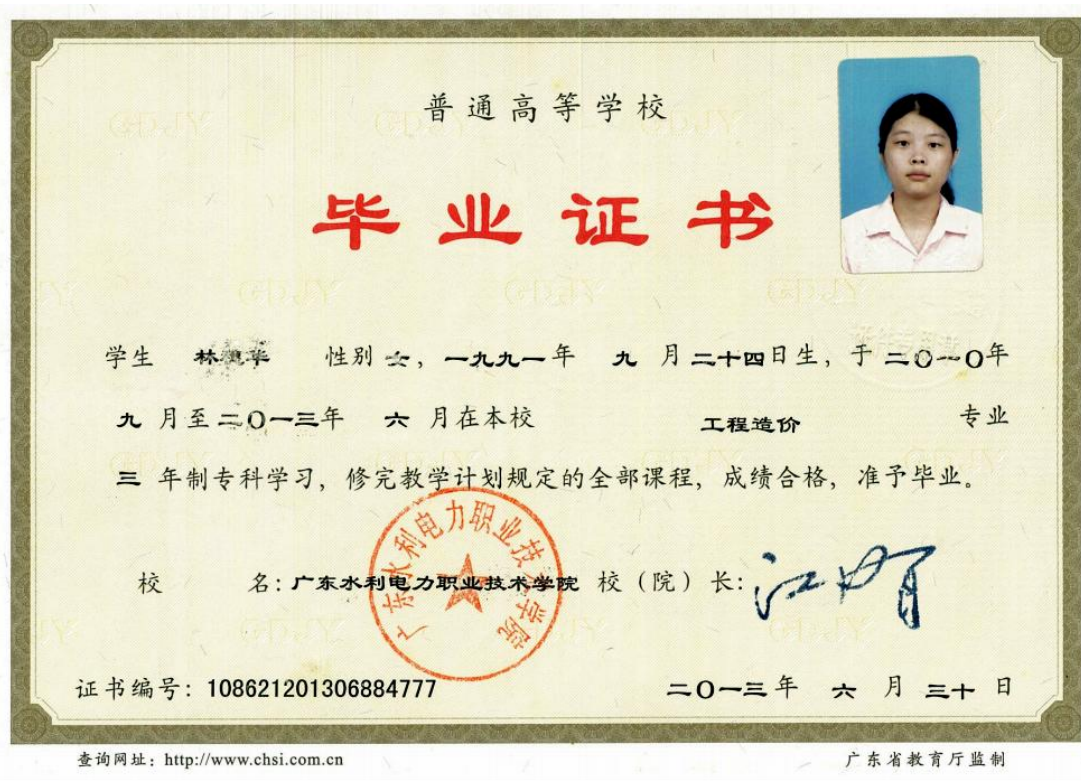 普通高等学校
毕业证书
学生 林 华 性别 女，一九九一年 九 月二十四日生，于二〇一〇年
九 月至二〇一三年 六 月在本校 工程造价 专业
三 年制专科学习，修完教学计划规定的全部课程，成绩合格，准予毕业。
广东水利电力职业技术学院
校 名：广东水利电力职业技术学院 校（院）长：
证书编号：108621201306884777 二〇一三年 六 月 三十 日
查询网址：http://www.chsi.com.cn 广东省教育厅监制
GDJY